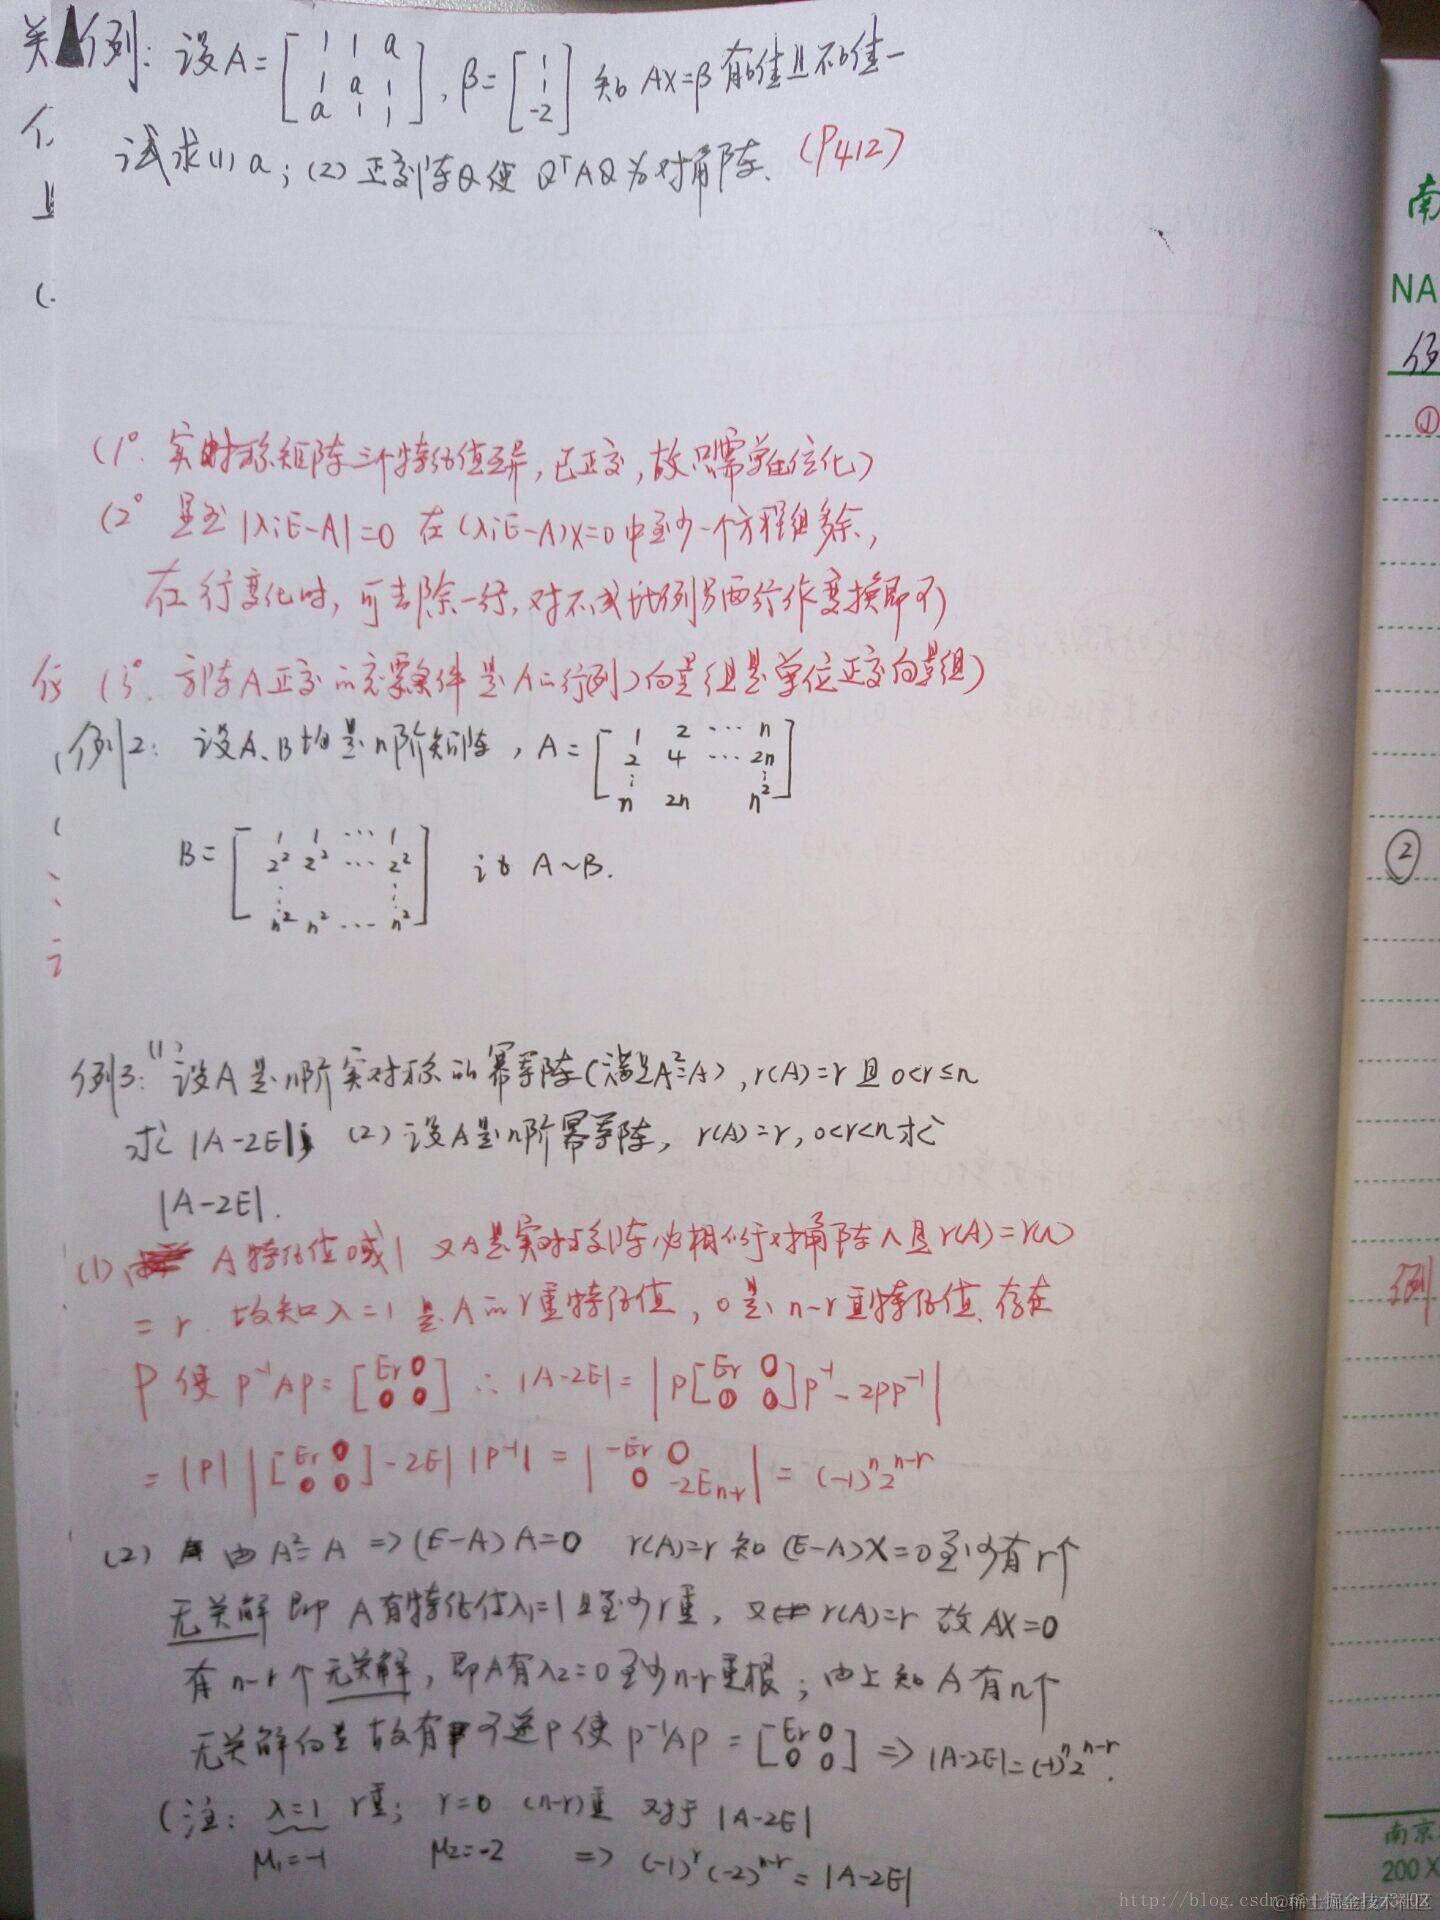 关例: 设A= [1 1 a; 1 a 1; a 1 1], β= [1; 1; -2] 知 AX=β 有解且不唯一
试求(1) a; (2) 正交阵Q使 QᵀAQ为对角阵. (P412)
(1° 实对称矩阵三个特征值互异, 已正交, 故只需单位化)
(2° 显然 |λiE-A|=0 在(λiE-A)X=0中至少一个方程组多余,
在行变化时, 可去除一行, 对不成比例另两行作变换即可)
(3° 方阵A正交的充要条件是A的行(列)向量组是单位正交向量组)
例2: 设A、B均是n阶矩阵, A= [1 2 ⋯ n; 2 4 ⋯ 2n; ⋮ ⋮; n 2n n²]
B= [1 1 ⋯ 1; 2² 2² ⋯ 2²; ⋮ ⋮; n² n² ⋯ n²] 证 A~B.
例3: (1) 设A是n阶实对称的幂等阵(满足A²=A), r(A)=r 且 0<r≤n
求 |A-2E|; (2) 设A是n阶幂等阵, r(A)=r, 0<r<n 求
|A-2E|.
(1) A特征值0或1 又A是实对称阵必相似于对角阵Λ且r(A)=r(Λ)
=r. 故知λ=1是A的r重特征值, 0是n-r重特征值. 存在
P 使 P⁻¹AP= [Er 0; 0 0] ∴ |A-2E|= |P[Er 0; 0 0]P⁻¹-2PP⁻¹|
= |P| |[Er 0; 0 0]-2E| |P⁻¹| = |-Er 0; 0 -2En-r| = (-1)ⁿ2ⁿ⁻ʳ
(2) 由A²=A => (E-A)A=0 r(A)=r 知 (E-A)X=0至少有r个
无关解 即 A有特征值λ1=1且至少r重, 又 r(A)=r 故 AX=0
有n-r个无关解, 即A有λ2=0至少n-r重根; 由上知A有n个
无关解向量 故有可逆P使 P⁻¹AP = [Er 0; 0 0] => |A-2E|=(-1)ⁿ2ⁿ⁻ʳ.
(注: λ=1 r重; r=0 (n-r)重 对于 |A-2E|
μ1=-1 μ2=-2 => (-1)ʳ(-2)ⁿ⁻ʳ= |A-2E|
南
NA
例
①
②
例
南京
200 X
http://blog.csdn.n
@稀土掘金技术社区